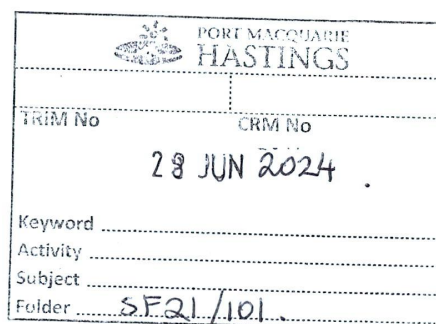 PORT MACQUARIE
HASTINGS
TRIM No CRM No
28 JUN 2024
Keyword
Activity
Subject
Folder SF21/101.